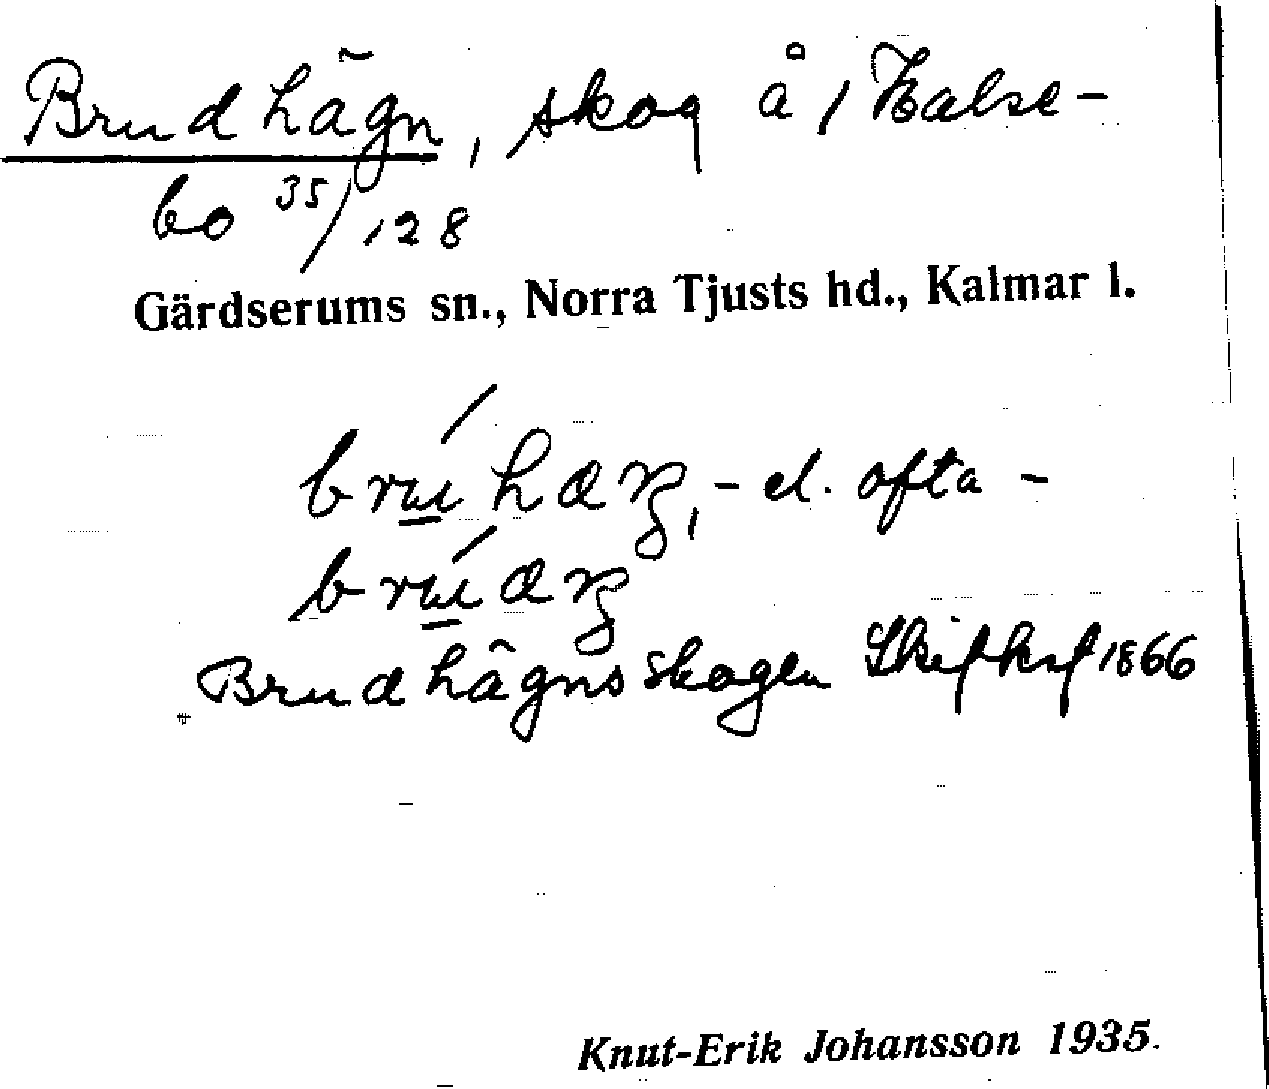 Brudhägn, skog å 1 Kalse-
bo 35/128
Gärdserums sn., Norra Tjusts hd., Kalmar l.
- el. ofta -
Brudhägnsskogen Skifksf 1866
Knut-Erik Johansson 1935.